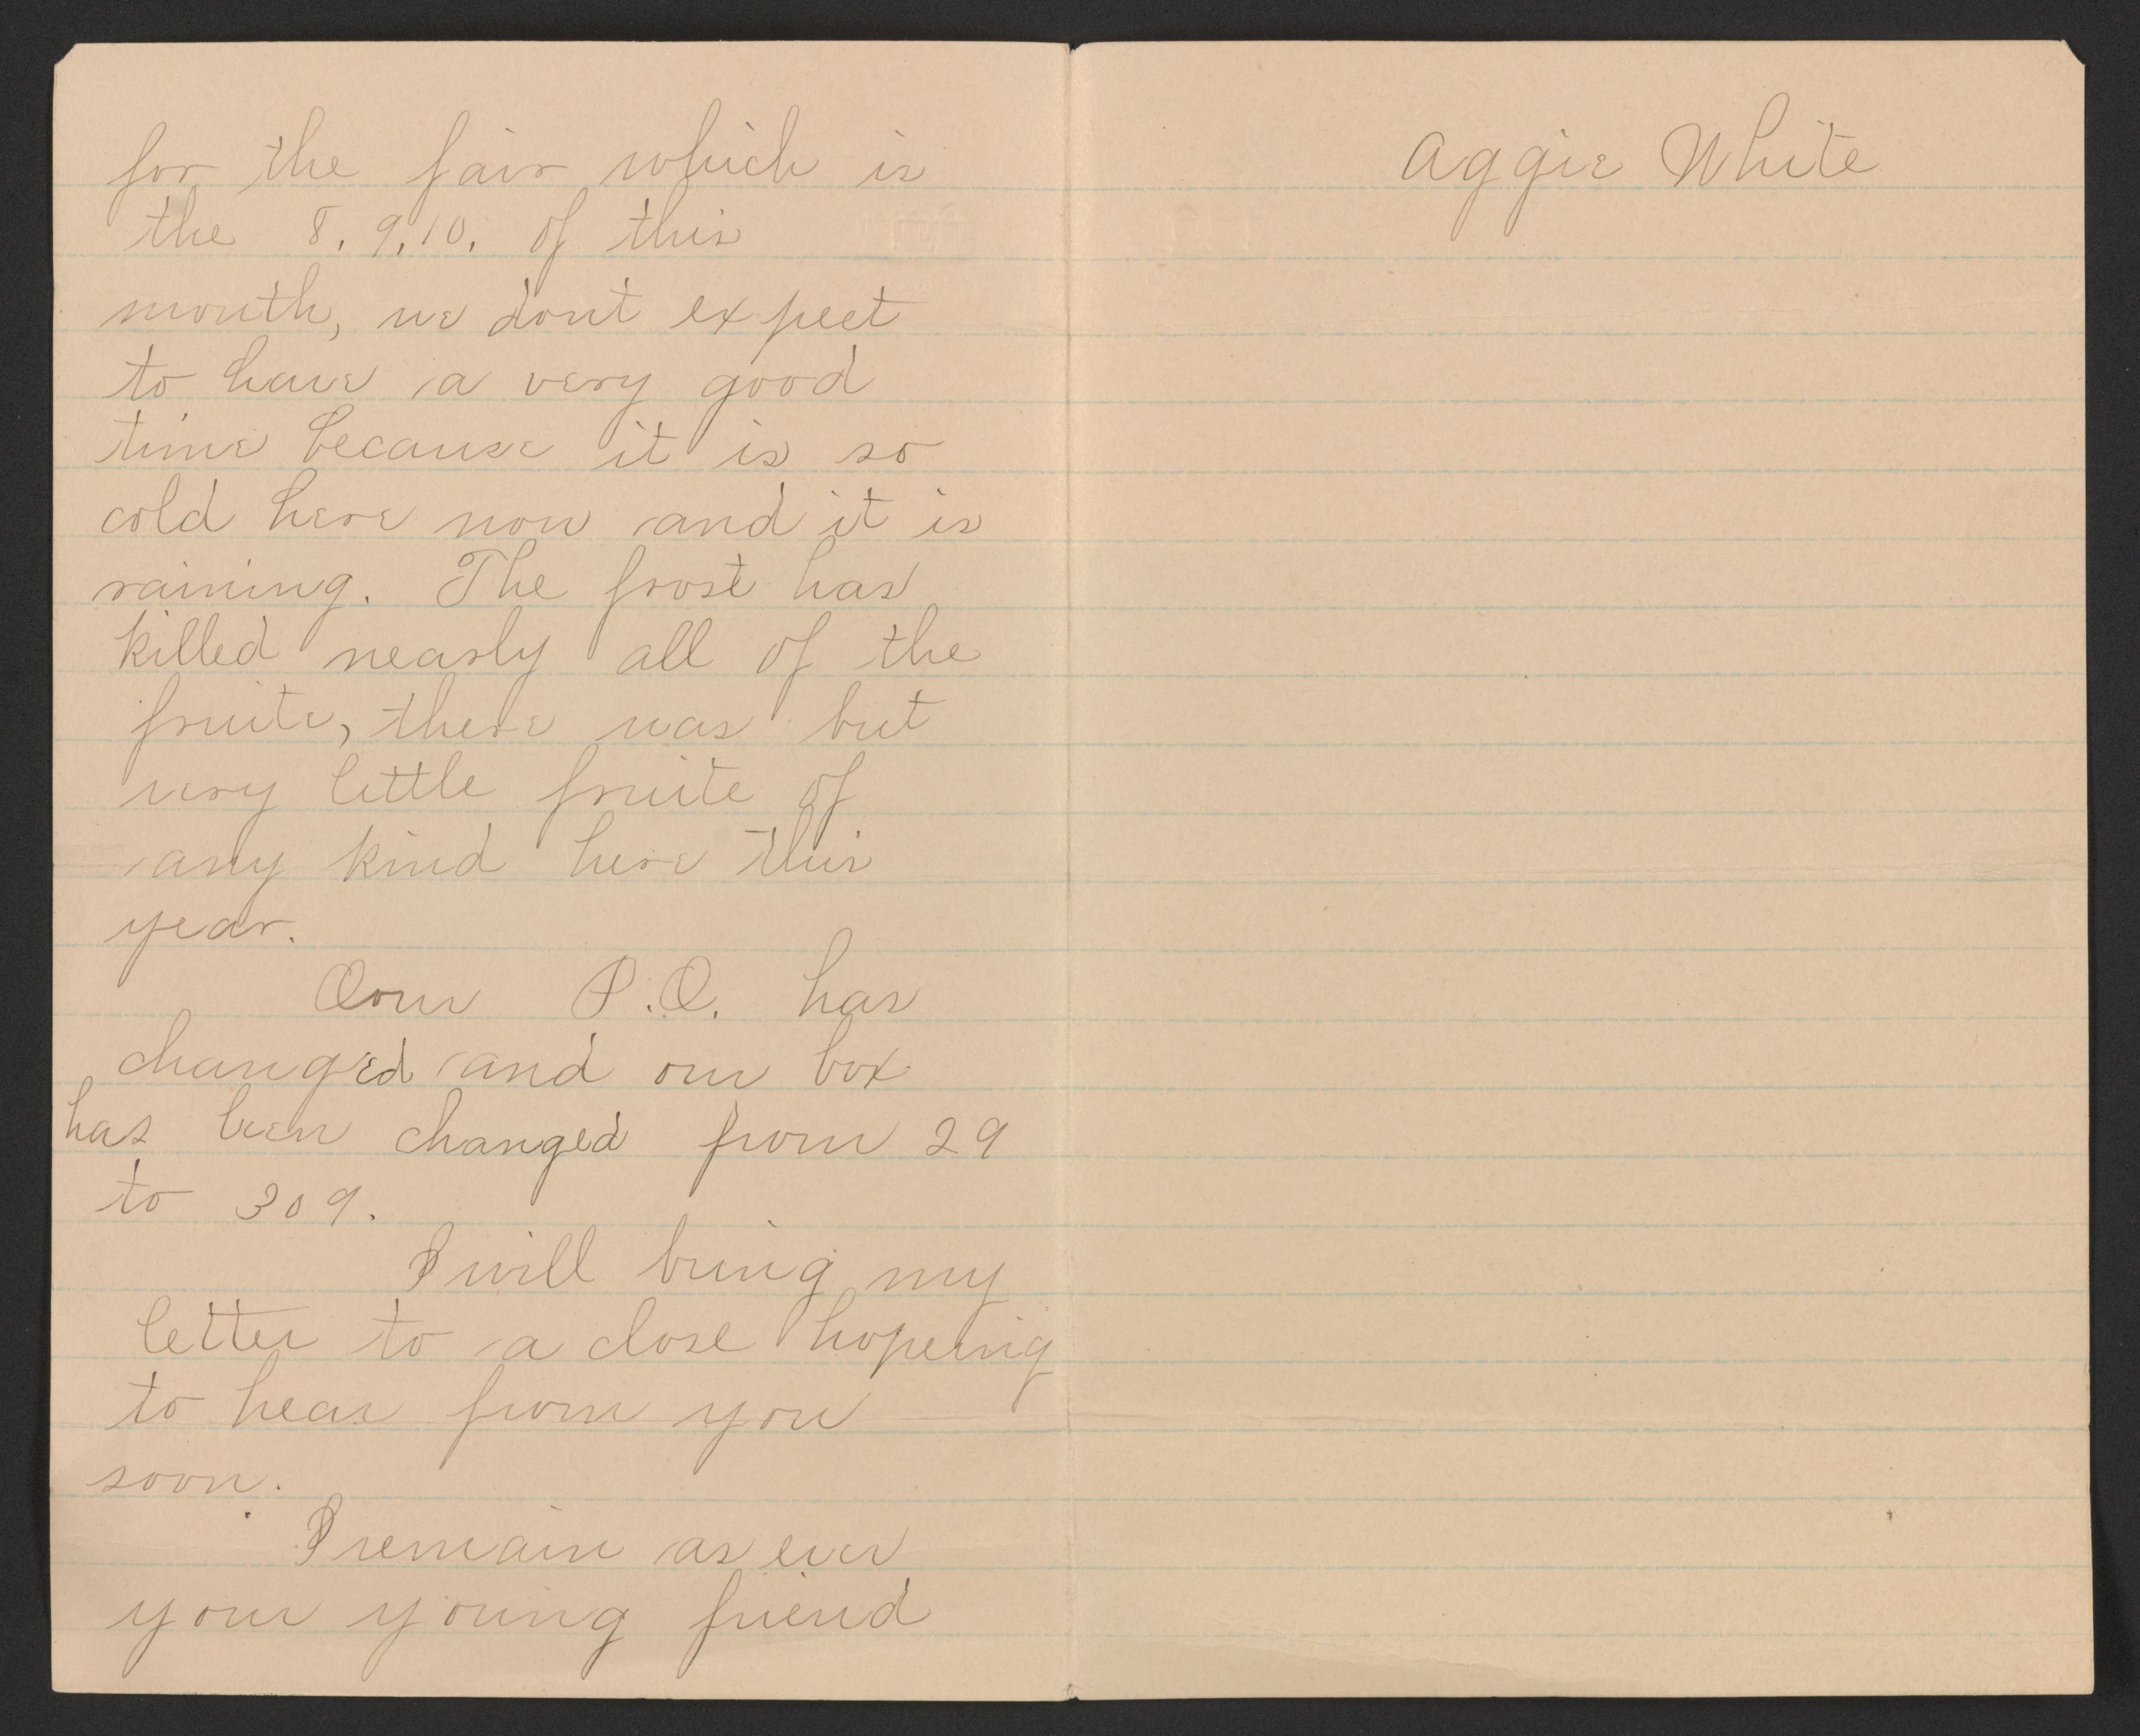 for the fair which is
the 8, 9, 10, of this
month, we dont expect
to have a very good
time because it is so
cold here now and it is
raining. The frost has
killed nearly all of the
fruite, there was but
very little fruite of
any kind here this
year.
Our P.O. has
changed and our box
has been changed from 29
to 309.
I will bring my
letter to a close hopeing
to hear from you
soon.
I remain as ever
your young friend
Aggie White